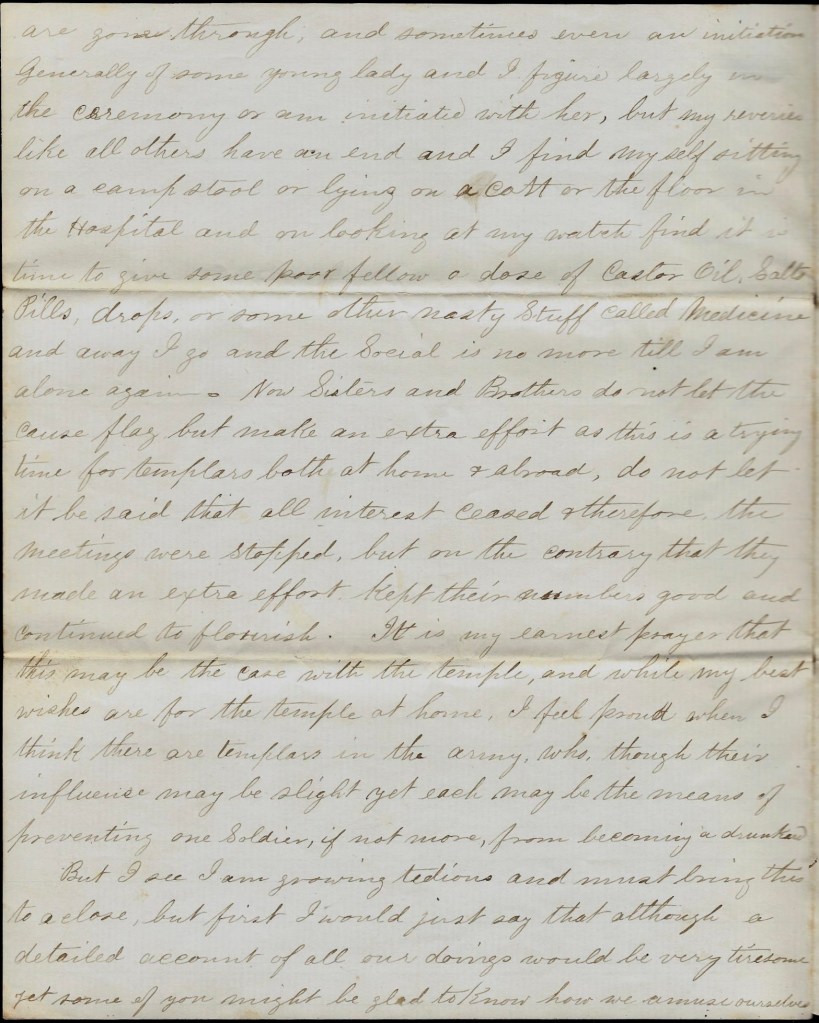 are gone through, and sometimes even an initiation
Generally of some young lady and I figure largely in
the ceremony or am initiated with her, but my reveries
like all others have an end and I find myself sitting
on a camp stool or lying on a cott or the floor in
the Hospital and on looking at my watch find it is
time to give some poor fellow a dose of Castor Oil, Salts
Pills, drops, or some other nasty Stuff called Medicine
and away I go and the Social is no more till I am
alone again. Now Sisters and Brothers do not let the
cause flag but make an extra effort as this is a trying
time for templars both at home & abroad, do not let
it be said that all interest ceased & therefore, the
meetings were stopped, but on the contrary that they
made an extra effort kept their numbers good and
continued to flourish. It is my earnest prayer that
this may be the case with the temple, and while my best
wishes are for the temple at home, I feel proud when I
think there are templars in the army, who, though their
influence may be slight yet each may be the means of
preventing one Soldier, if not more, from becoming a drunkard
But I see I am growing tedious and must bring this
to a close, but first I would just say that although a
detailed account of all our doings would be very tiresome
yet some of you might be glad to know how we amuse ourselves